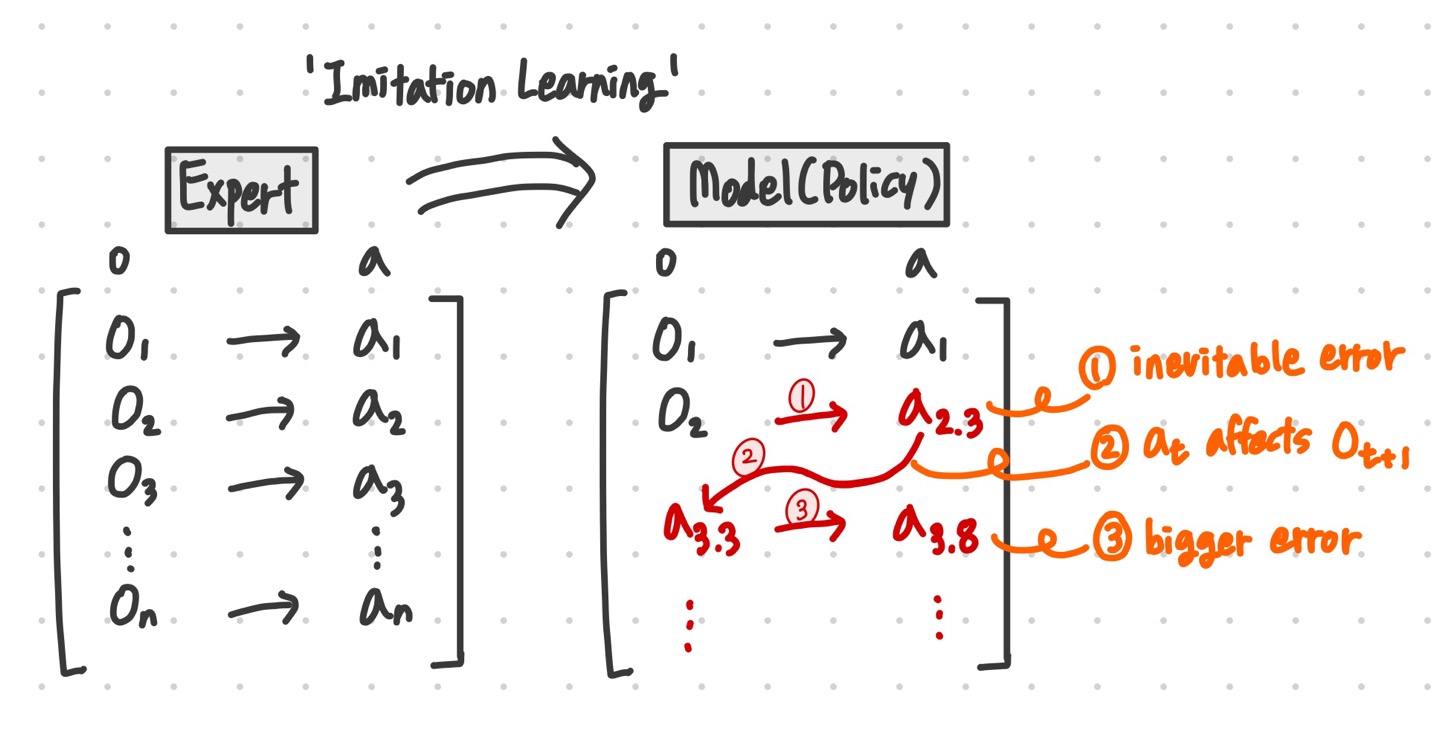 'Imitation Learning'
Expert
Model(Policy)
o a
o a
O₁ → a₁
O₂ → a₂
O₃ → a₃
⋮ ⋮
Oₙ → aₙ
O₁ → a₁
O₂ ① → a₂.₃
②
a₃.₃ ③ → a₃.₈
⋮ ⋮
① inevitable error
② aₜ affects Oₜ₊₁
③ bigger error